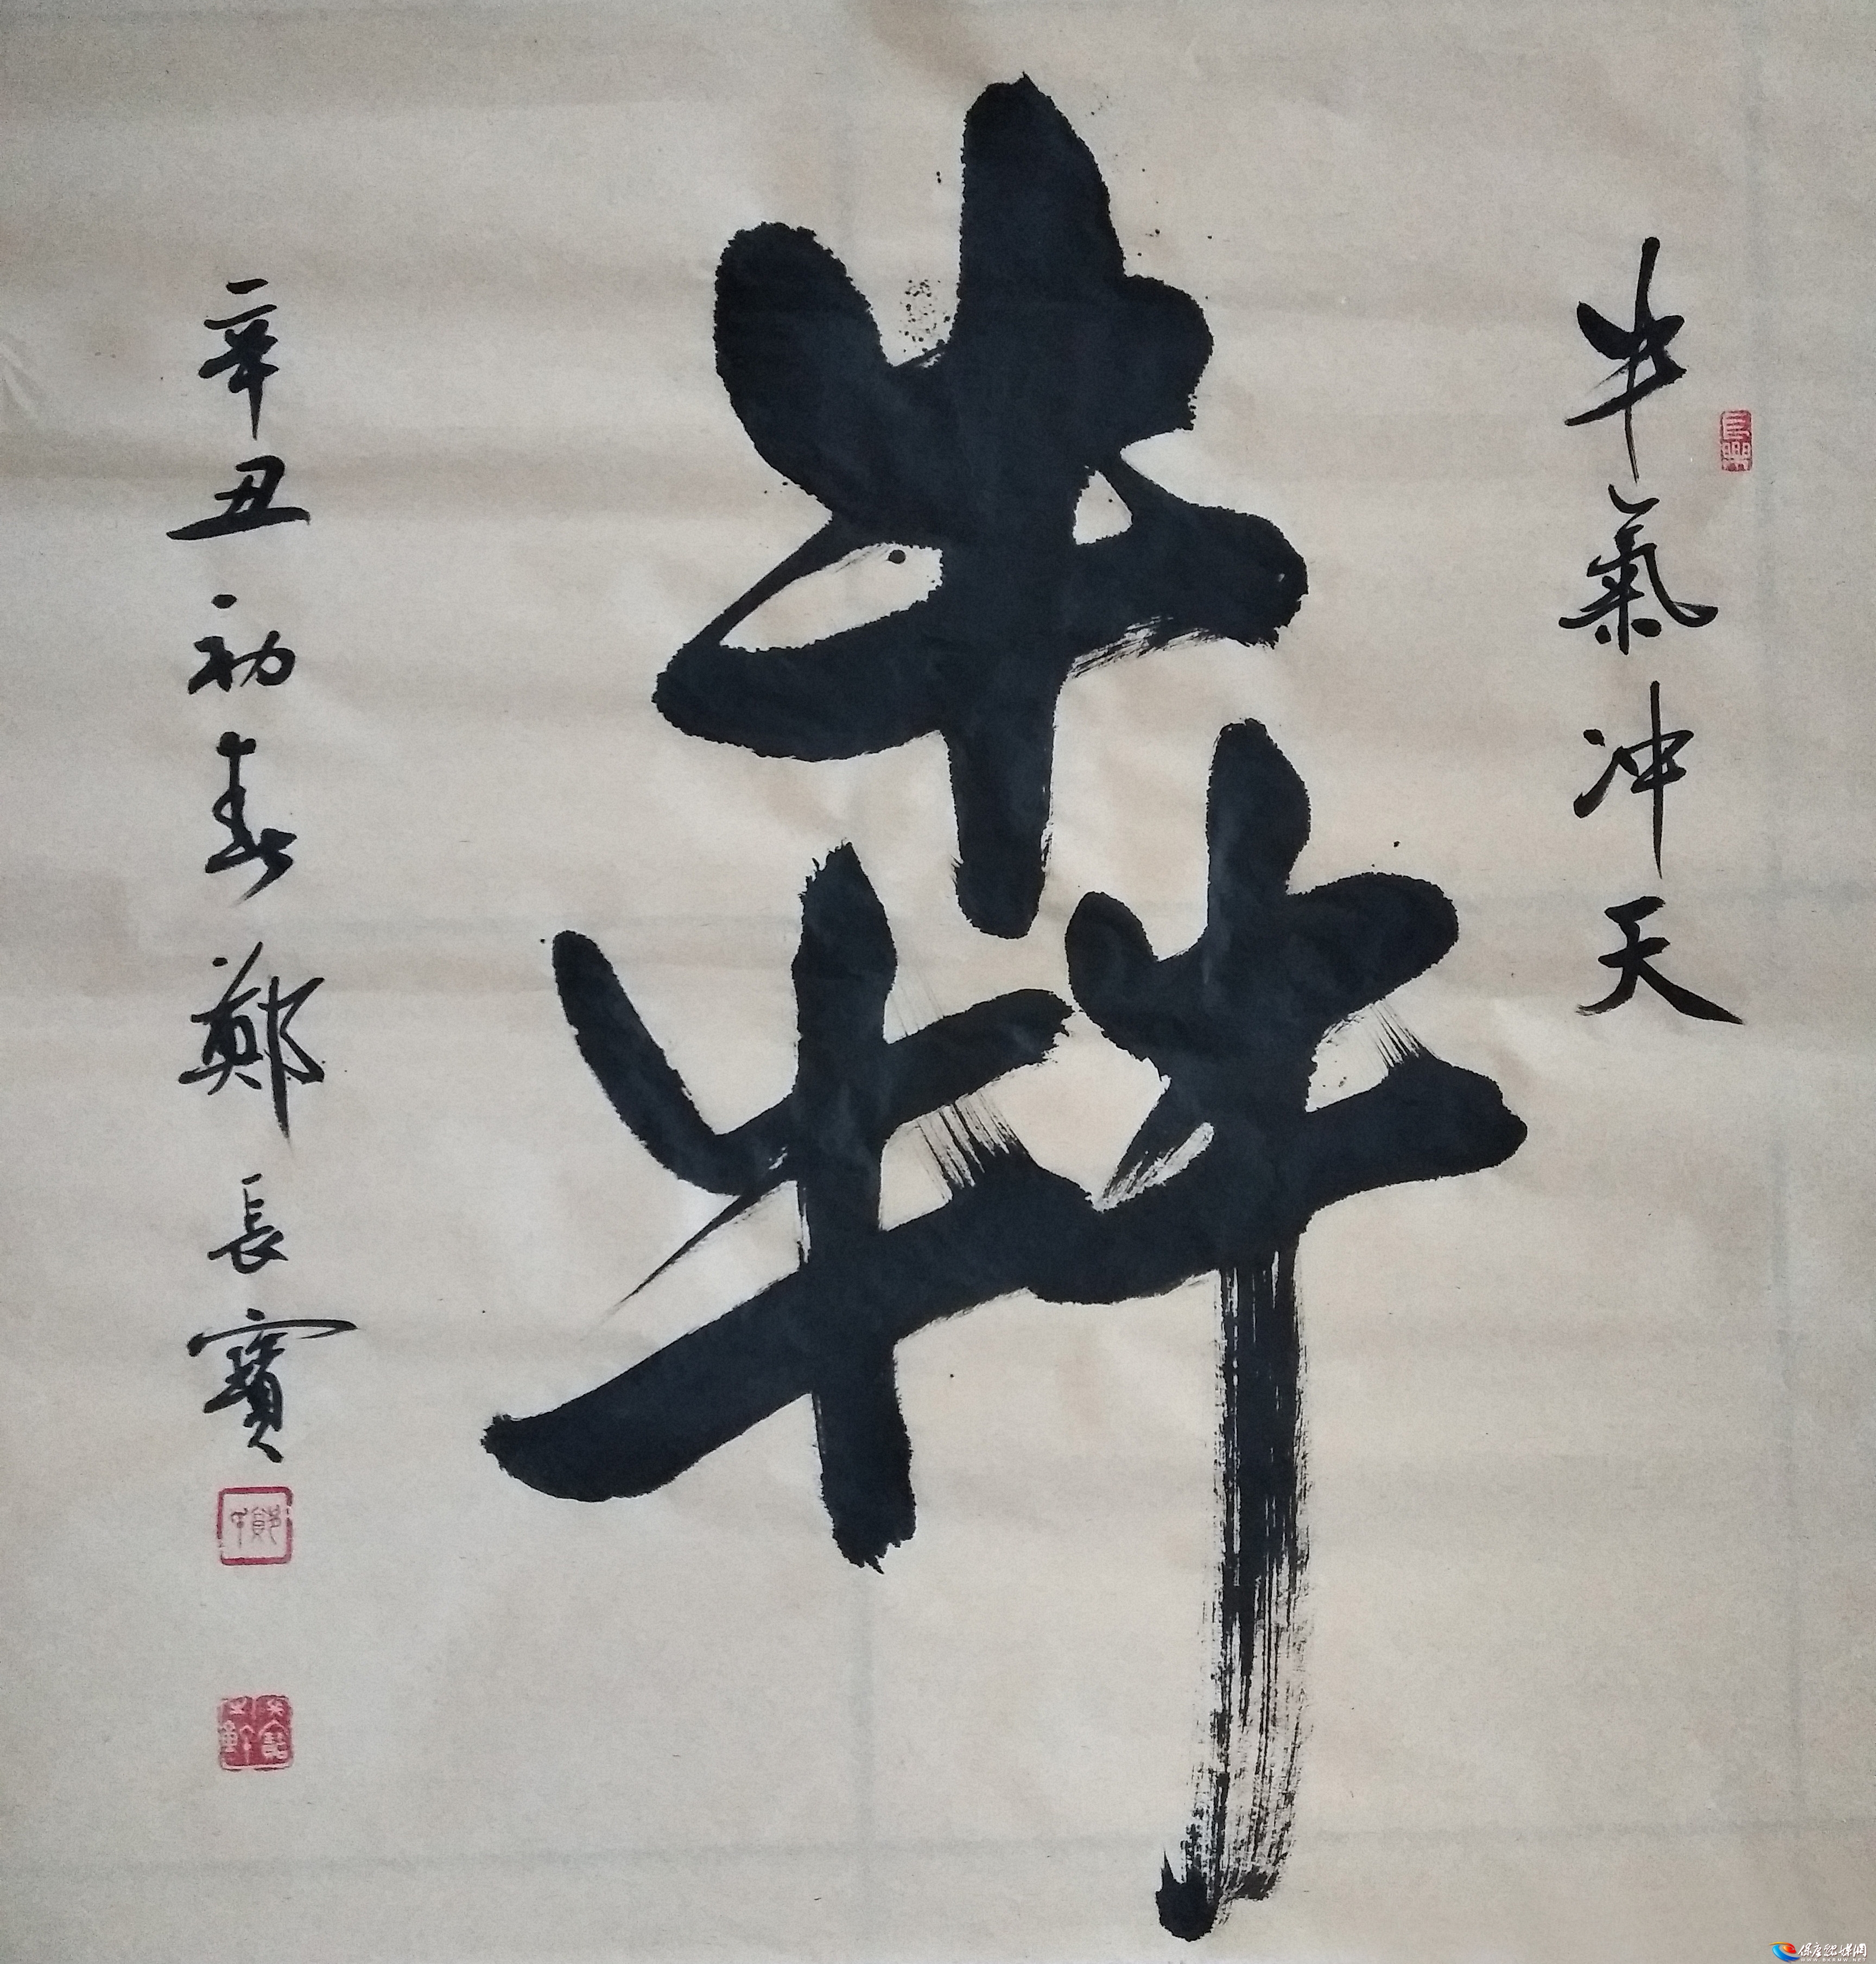 牛氣冲天
犇
辛丑初春鄭長寶